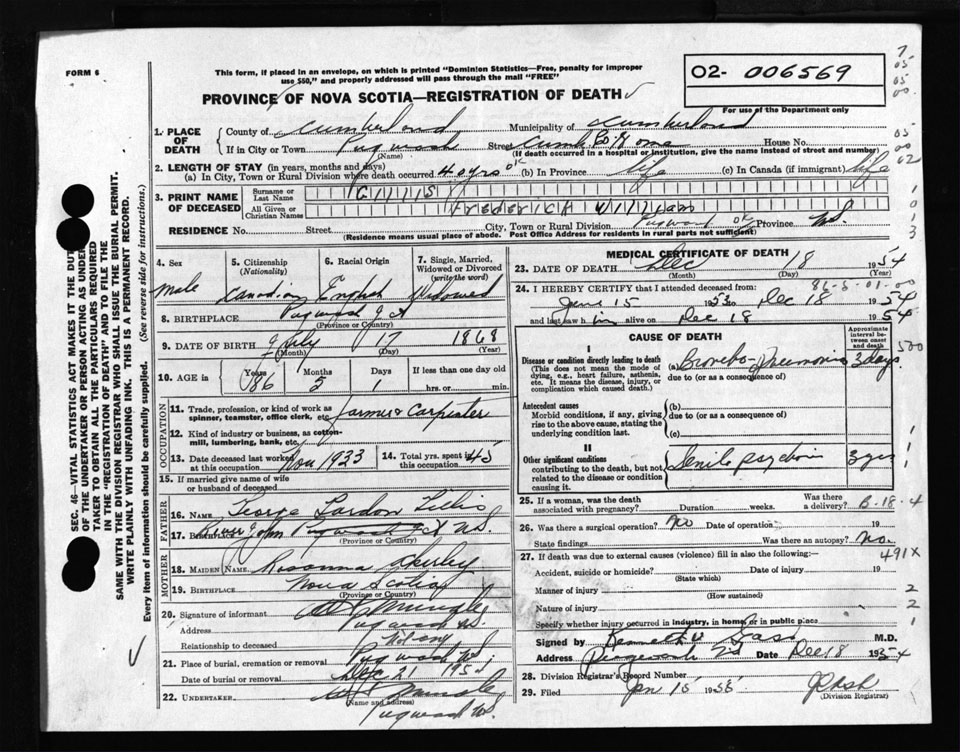 FORM 6
This form, if placed in an envelope, on which is printed "Dominion Statistics—Free, penalty for improper
use $50," and properly addressed will pass through the mail "FREE"
PROVINCE OF NOVA SCOTIA—REGISTRATION OF DEATH
02- 006569
For use of the Department only
1. PLACE OF DEATH
County of Cumberland Municipality of Cumberland
If in City or Town Pugwash (Name) Street House No.
(If death occurred in a hospital or institution, give the name instead of street and number)
2. LENGTH OF STAY (in years, months and days)
(a) In City, Town or Rural Division where death occurred 4 yrs (b) In Province life (c) In Canada (if immigrant) life
3. PRINT NAME OF DECEASED
Surname or Last Name
All Given or Christian Names FREDERICK William
RESIDENCE No. Street City, Town or Rural Division Pugwash Province N.S.
(Residence means usual place of abode. Post Office Address for residents in rural parts not sufficient)
SEC. 46—VITAL STATISTICS ACT MAKES IT THE DUTY
OF THE UNDERTAKER OR PERSON ACTING AS UNDER-
TAKER TO OBTAIN ALL THE PARTICULARS REQUIRED
IN THE "REGISTRATION OF DEATH" AND TO FILE THE
SAME WITH THE DIVISION REGISTRAR WHO SHALL ISSUE THE BURIAL PERMIT.
WRITE PLAINLY WITH UNFADING INK. THIS IS A PERMANENT RECORD.
Every item of information should be carefully supplied. (See reverse side for instructions.)
4. Sex Male
5. Citizenship (Nationality) Canadian
6. Racial Origin English
7. Single, Married, Widowed or Divorced (write the word) Widowed
8. BIRTHPLACE Pugwash (Province or Country)
9. DATE OF BIRTH July (Month) 17 (Day) 1868 (Year)
10. AGE in Years 86 Months 5 Days 1 If less than one day old hrs. or min.
OCCUPATION
11. Trade, profession, or kind of work as spinner, teamster, office clerk, etc. Farmer & Carpenter
12. Kind of industry or business, as cotton-mill, lumbering, bank, etc.
13. Date deceased last worked at this occupation Nov 1933
14. Total yrs. spent in this occupation 45
15. If married give name of wife or husband of deceased
FATHER
16. Name George
17. Birthplace River John Pugwash N.S.
(Province or Country)
MOTHER
18. MAIDEN Name Rosanna
19. BIRTHPLACE Nova Scotia
(Province or Country)
20. Signature of informant
Address Pugwash N.S.
Relationship to deceased Not any
21. Place of burial, cremation or removal Pugwash N.S.
Date of burial or removal Dec 21 195
22. UNDERTAKER
(Name and address)
Pugwash N.S.
MEDICAL CERTIFICATE OF DEATH
23. DATE OF DEATH Dec (Month) 18 (Day) 1954 (Year)
24. I HEREBY CERTIFY that I attended deceased from:
June 15 1953 to Dec 18 1954
and last saw him alive on Dec 18 1954
CAUSE OF DEATH
Approximate interval between onset and death
I
Disease or condition directly leading to death
(This does not mean the mode of dying, e.g., heart failure, asthenia, etc. It means the disease, injury, or complication which caused death.)
(a) Broncho-pneumonia 3 days
due to (or as a consequence of)
Antecedent causes
Morbid conditions, if any, giving rise to the above cause, stating the underlying condition last.
(b)
due to (or as a consequence of)
(c)
II
Other significant conditions
contributing to the death, but not related to the disease or condition causing it.
Senile psychosis 3 yrs
25. If a woman, was the death associated with pregnancy? Duration weeks. Was there a delivery?
B-18-4
26. Was there a surgical operation? No Date of operation 19
State findings Was there an autopsy? No.
491X
27. If death was due to external causes (violence) fill in also the following:—
Accident, suicide or homicide? Date of injury 19
(State which)
Manner of injury
(How sustained)
Nature of injury
Specify whether injury occurred in industry, in home or in public place
Signed by Kenneth M.D.
Address Pugwash N.S. Date Dec 18 1954
28. Division Registrar's Record Number
29. Filed Jan 15 1955
(Division Registrar)